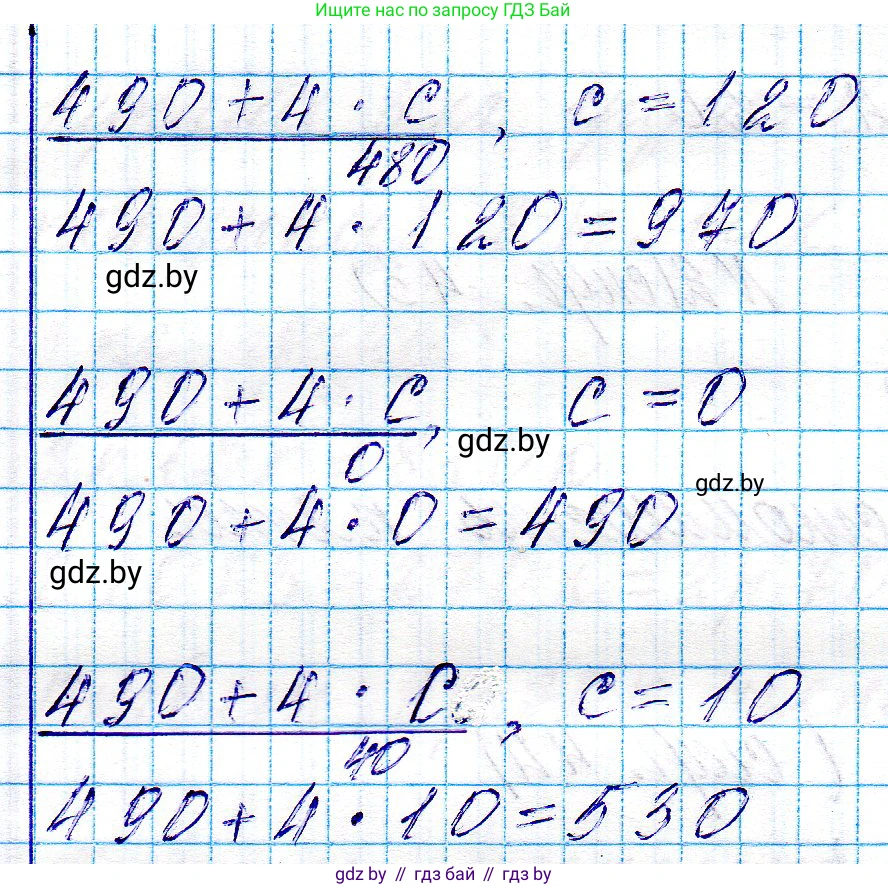 Ищите нас по запросу ГДЗ Бай
490 + 4 · c , c = 120
480
490 + 4 · 120 = 970
gdz.by
490 + 4 · c , c = 0
gdz.by
0
gdz.by
490 + 4 · 0 = 490
gdz.by
490 + 4 · c , c = 10
40
490 + 4 · 10 = 530
gdz.by // гдз бай // gdz.by